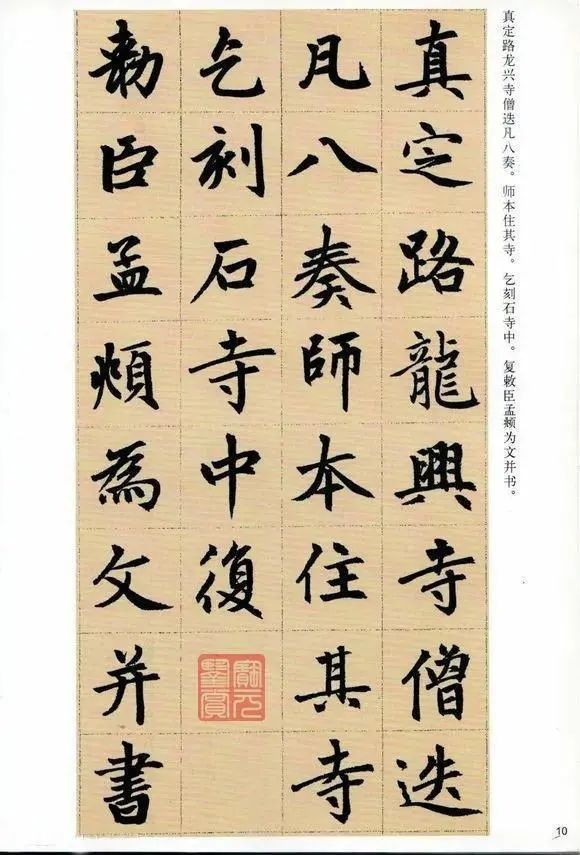 真定路龍興寺僧迭
凡八奏師本住其寺
乞刻石寺中復
勅臣孟頫為文并書
真定路龙兴寺僧迭凡八奏。师本住其寺。乞刻石寺中。复敕臣孟頫为文并书。
10